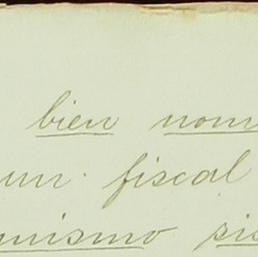 bien nom
un. fiscal
nismo sis